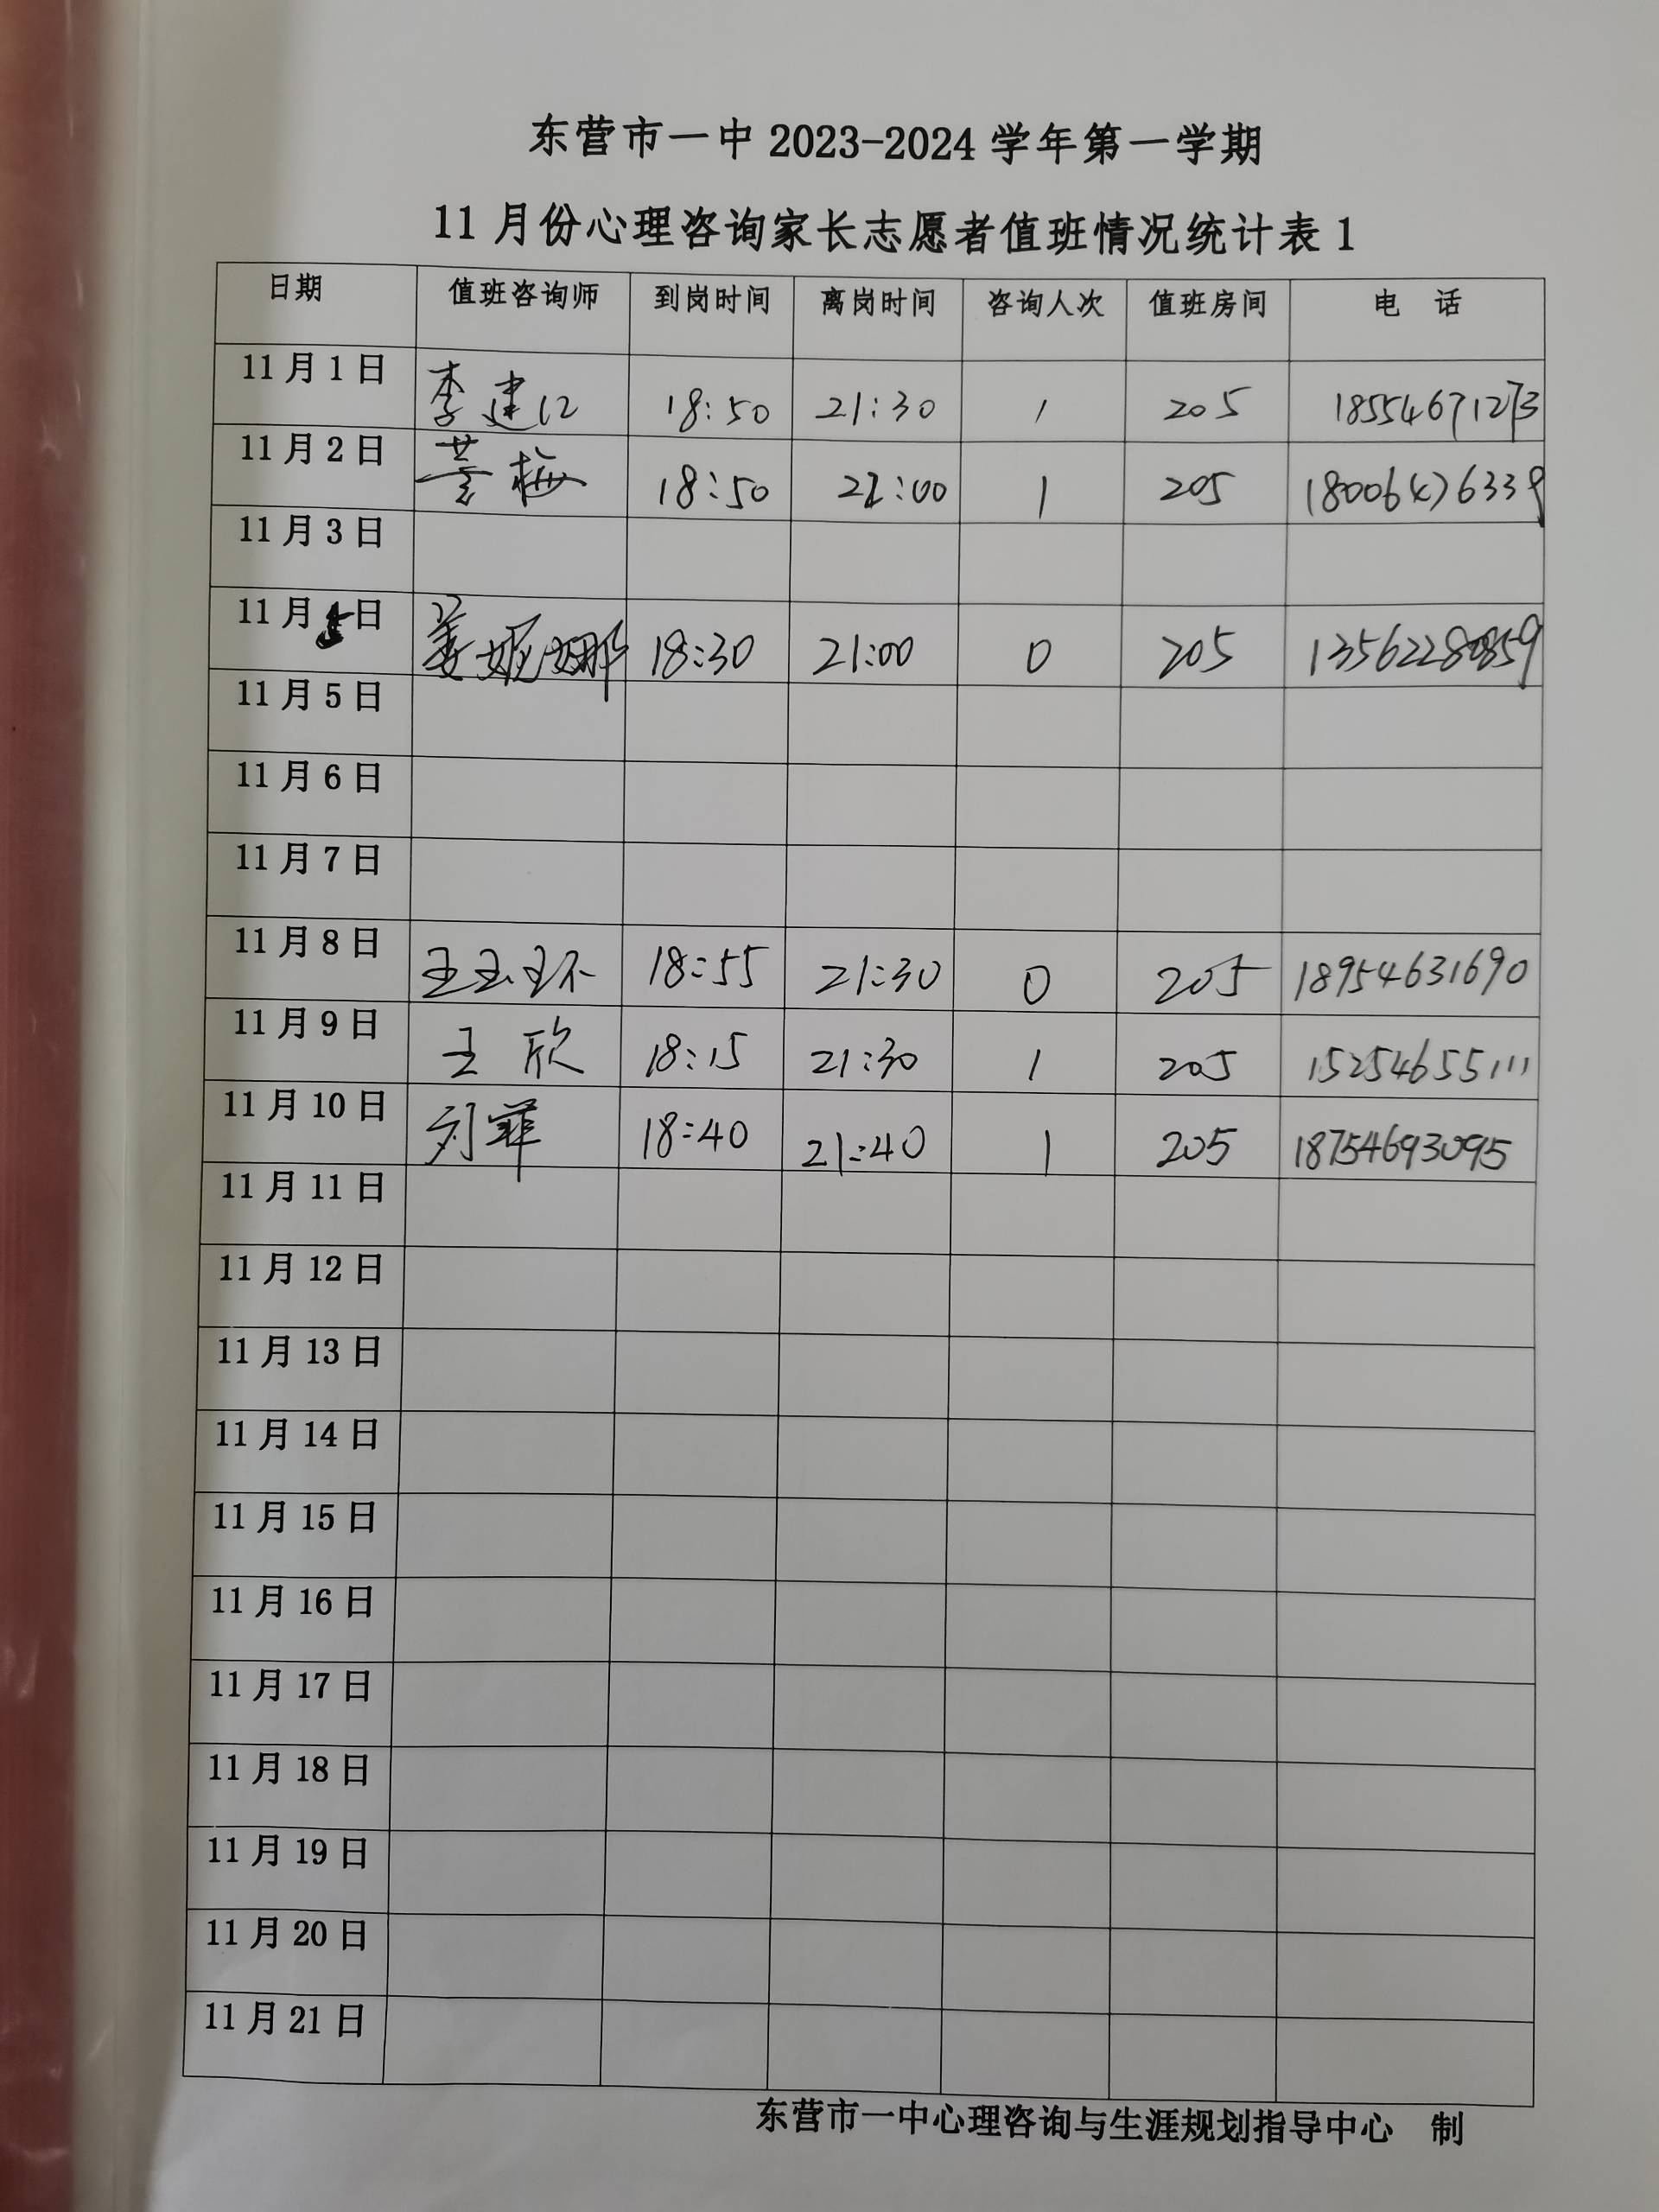 东营市一中 2023-2024 学年第一学期
11 月份心理咨询家长志愿者值班情况统计表 1
日期 值班咨询师 到岗时间 离岗时间 咨询人次 值班房间 电 话
11 月 1 日 李建江 18:50 21:30 1 205 18554671273
11 月 2 日 黄梅 18:50 :00 1 205 18006476339
11 月 3 日
11 月 5 日 姜妮娜 18:30 21:00 0 205 13562280859
11 月 5 日
11 月 6 日
11 月 7 日
11 月 8 日 王玉环 18:55 21:30 0 205 18954631690
11 月 9 日 王欣 18:15 21:30 1 205 15254655111
11 月 10 日 刘菲 18:40 21:40 1 205 18754693095
11 月 11 日
11 月 12 日
11 月 13 日
11 月 14 日
11 月 15 日
11 月 16 日
11 月 17 日
11 月 18 日
11 月 19 日
11 月 20 日
11 月 21 日
东营市一中心理咨询与生涯规划指导中心 制